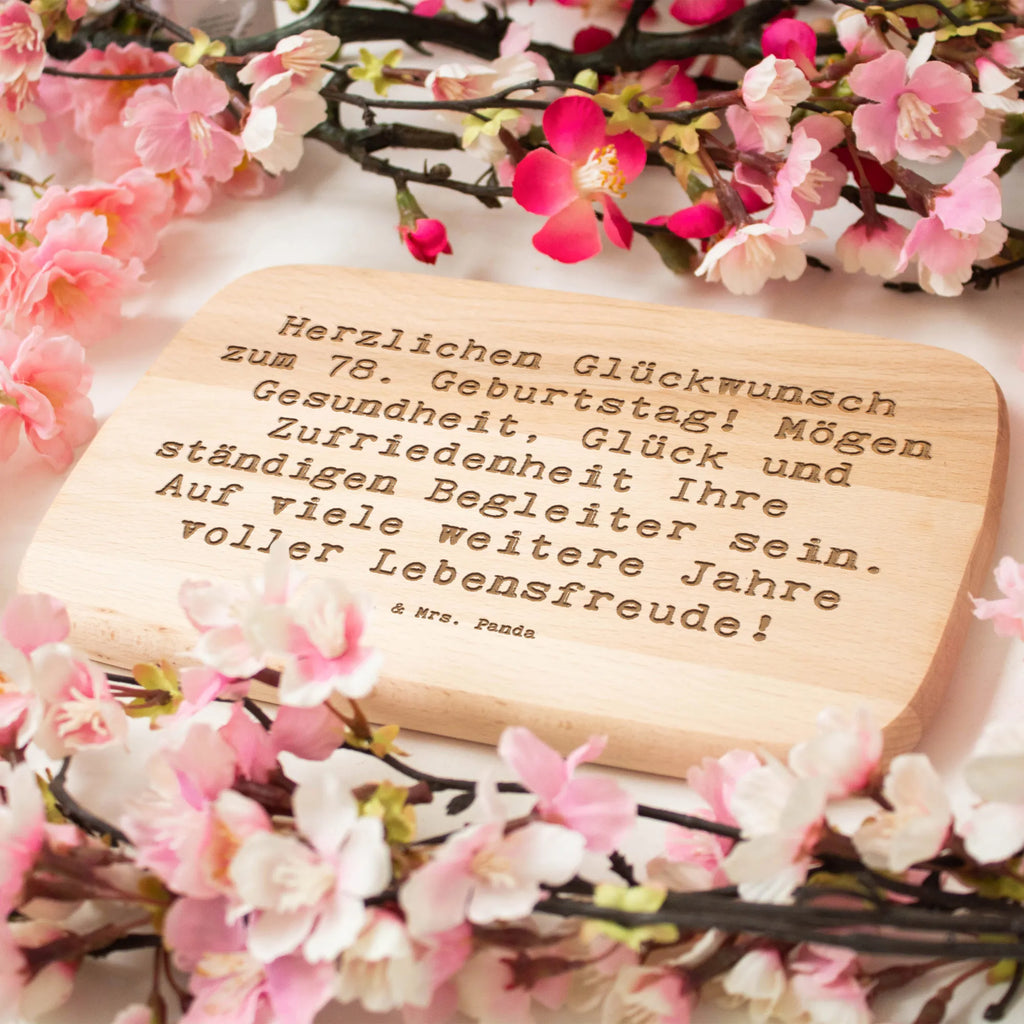 Herzlichen Glückwunsch
zum 78. Geburtstag! Mögen
Gesundheit, Glück und
Zufriedenheit Ihre
ständigen Begleiter sein.
Auf viele weitere Jahre
voller Lebensfreude!
& Mrs. Panda